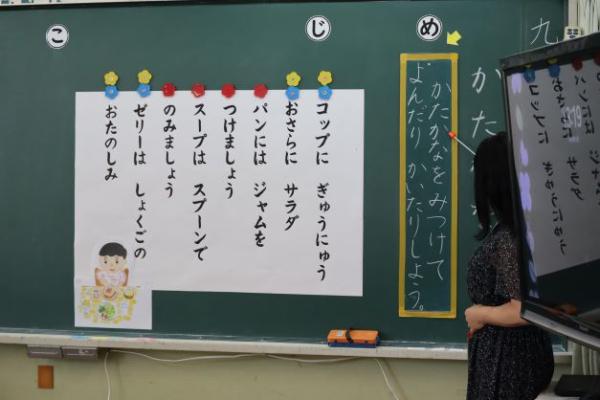 九
かた
め
かたかなをみつけて
よんだり かいたりしよう。
じ
コップに ぎゅうにゅう
おさらに サラダ
パンには ジャムを
つけましょう
スープは スプーンで
のみましょう
ゼリーは しょくごの
おたのしみ
こ
パンには
サラダ
コップに ぎゅうにゅう